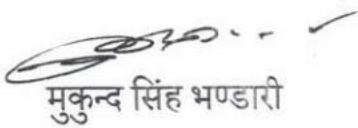 मुकुन्द सिंह भण्डारी